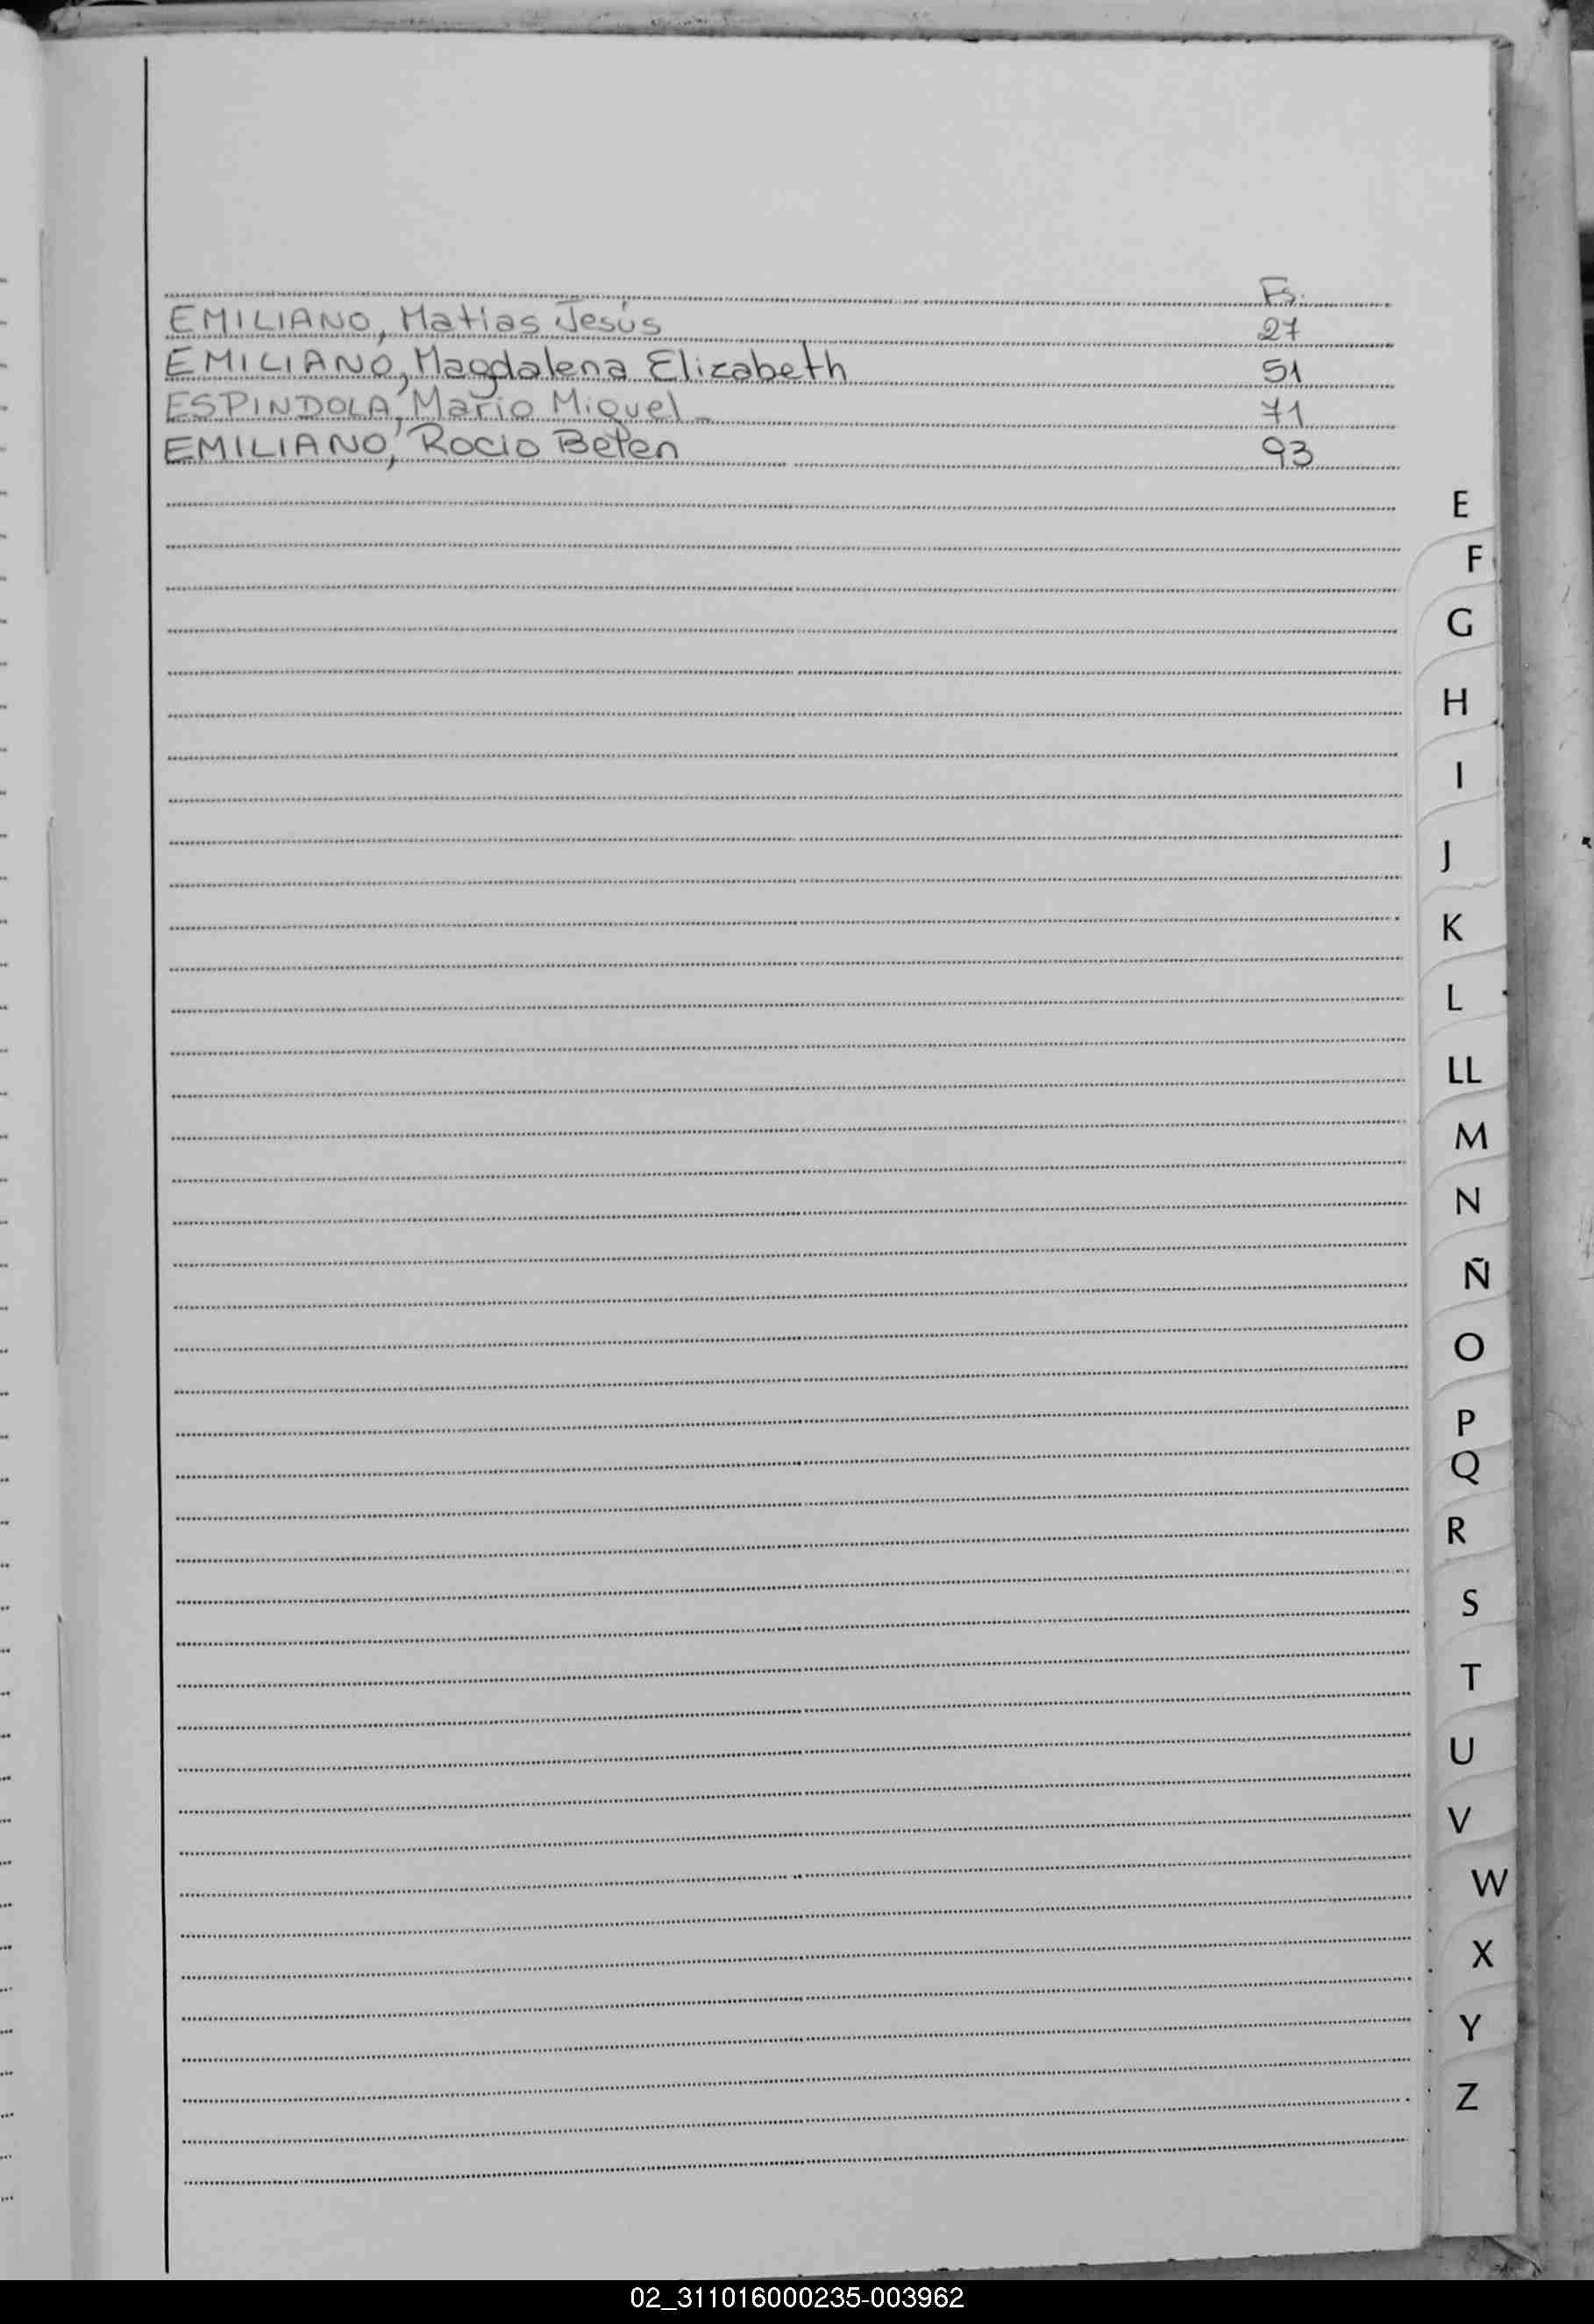 Fs.
EMILIANO, Matias Jesús 27
EMILIANO, Magdalena Elizabeth 51
ESPINDOLA, Mario Miguel 71
EMILIANO, Rocio Belen 93
E
F
G
H
I
J
K
L
LL
M
N
Ñ
O
P
Q
R
S
T
U
V
W
X
Y
Z
02_311016000235-003962